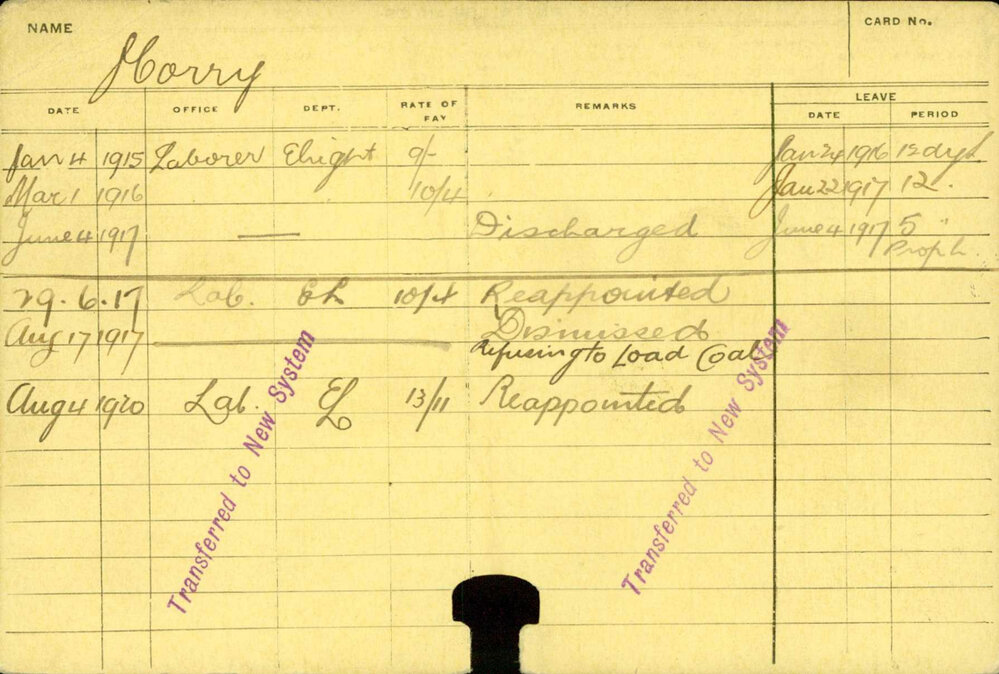 NAME
CARD No.
Horry
DATE OFFICE DEPT. RATE OF PAY REMARKS LEAVE
DATE PERIOD
Jan 4 1915 Laborer Elight 9/- Jan 24 1916 12 dys
Mar 1 1916 10/4 Jan 22 1917 12 "
June 4 1917 — Discharged June 4 1917 5 "
Prop L.
29. 6. 17 Lab. EL 10/4 Reappointed
Aug 17 1917 Dismissed
Refusing to Load Coal
Aug 4 1920 Lab. EL 13/11 Reappointed
Transferred to New System
Transferred to New System